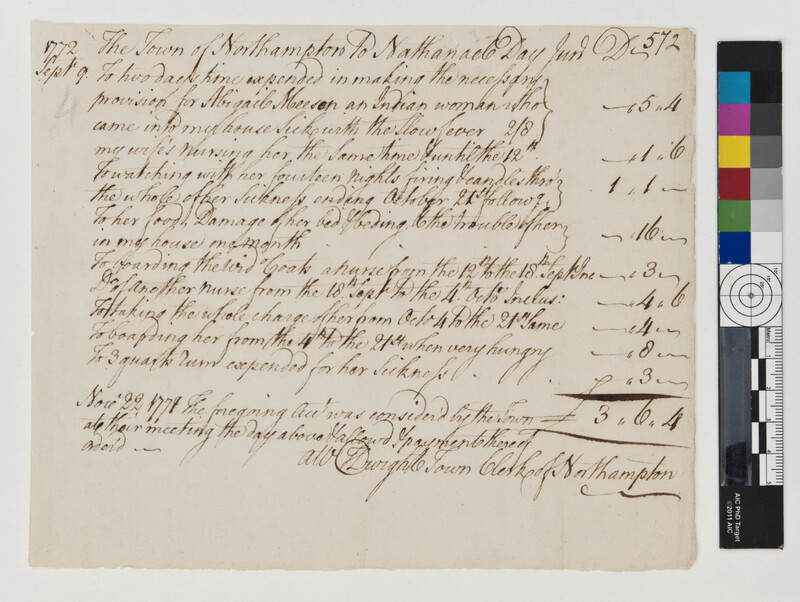 1772 The Town of Northampton To Nathanael Day Junr Dr 572
Septr 9. To two days time expended in making the necessary
4 provision for Abigail an Indian woman who
came into my house Sick with the Slow fever 2/8 — " 5 " 4
my wifes nursing her the Same time & until the 12th — " 1 " 6
To watching with her fourteen nights firing & candles thro'
the whole of her Sickness ending October 21st follow 1 " 1 —
To her food, Damage of her bed & beding, & the trouble of her
in my house one month — " 16 —
To boarding the Wid Coats a nurse from the 12th to the 18th Septr Inc — " 3 —
Do of another nurse from the 18th Sept to the 4th Octo Inclus: — " 4 " 6
To taking the whole charge of her from Octo 4 to the 21st Same — " 4 —
To boarding her from the 4th to the 21st when very hungry — " 8 —
To 3 quarts rum expended for her Sickness . . " 3 —
Novr 22 1774 The foregoing Acct was consider'd by the Town £ 3 " 6 " 4
at their meeting the day above & allow'd & payment thereof
order'd —
Dwight Town Clerk of Northampton
AIC PhD Target
©2011 AIC